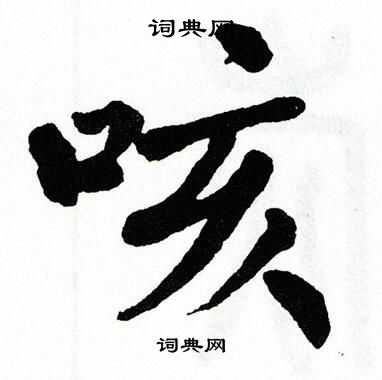 词典网
咳
词典网